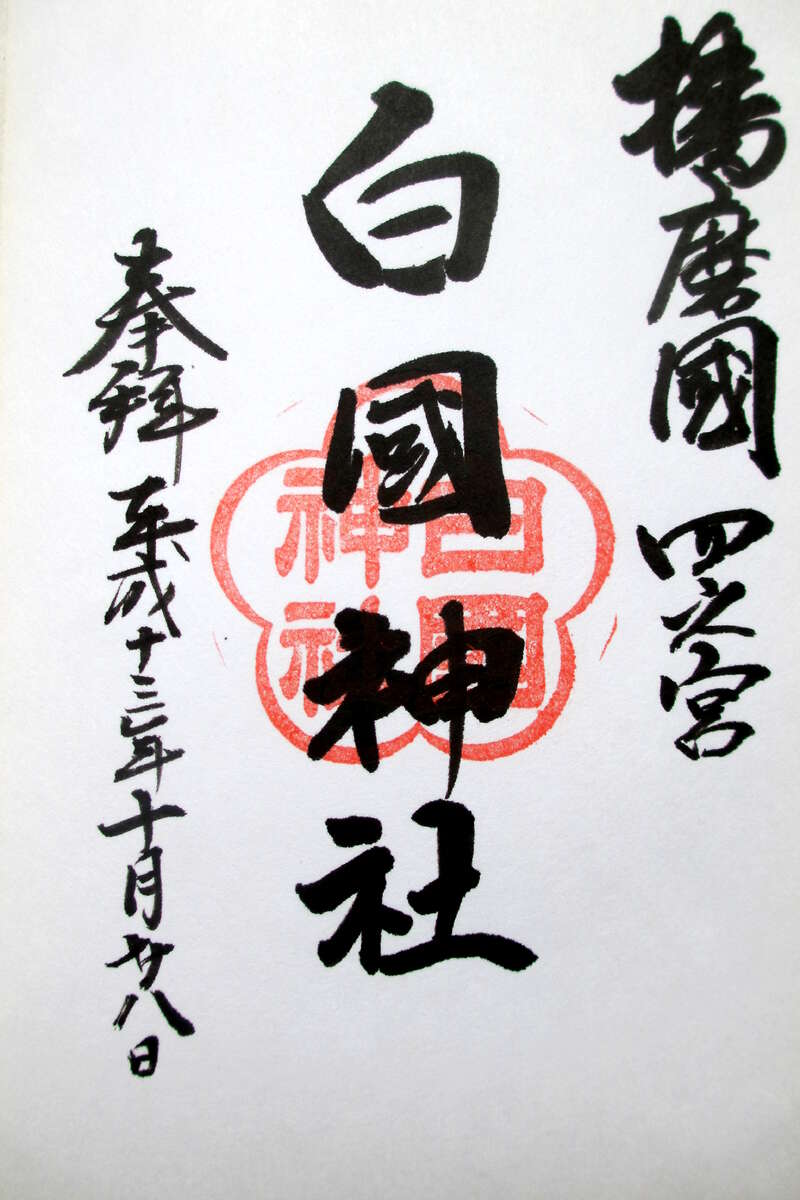 播磨國 四之宮
白國神社
奉拜 平成十三年十月廿八日
白國
神社